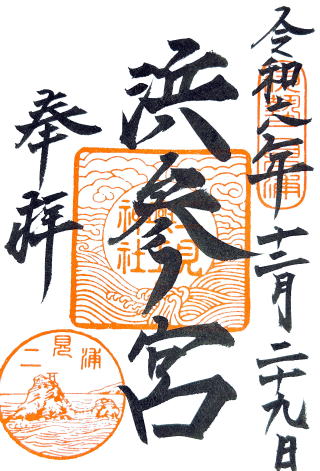 令和元年十二月二十九日
浜参宮
奉拝
見
神社
二見浦